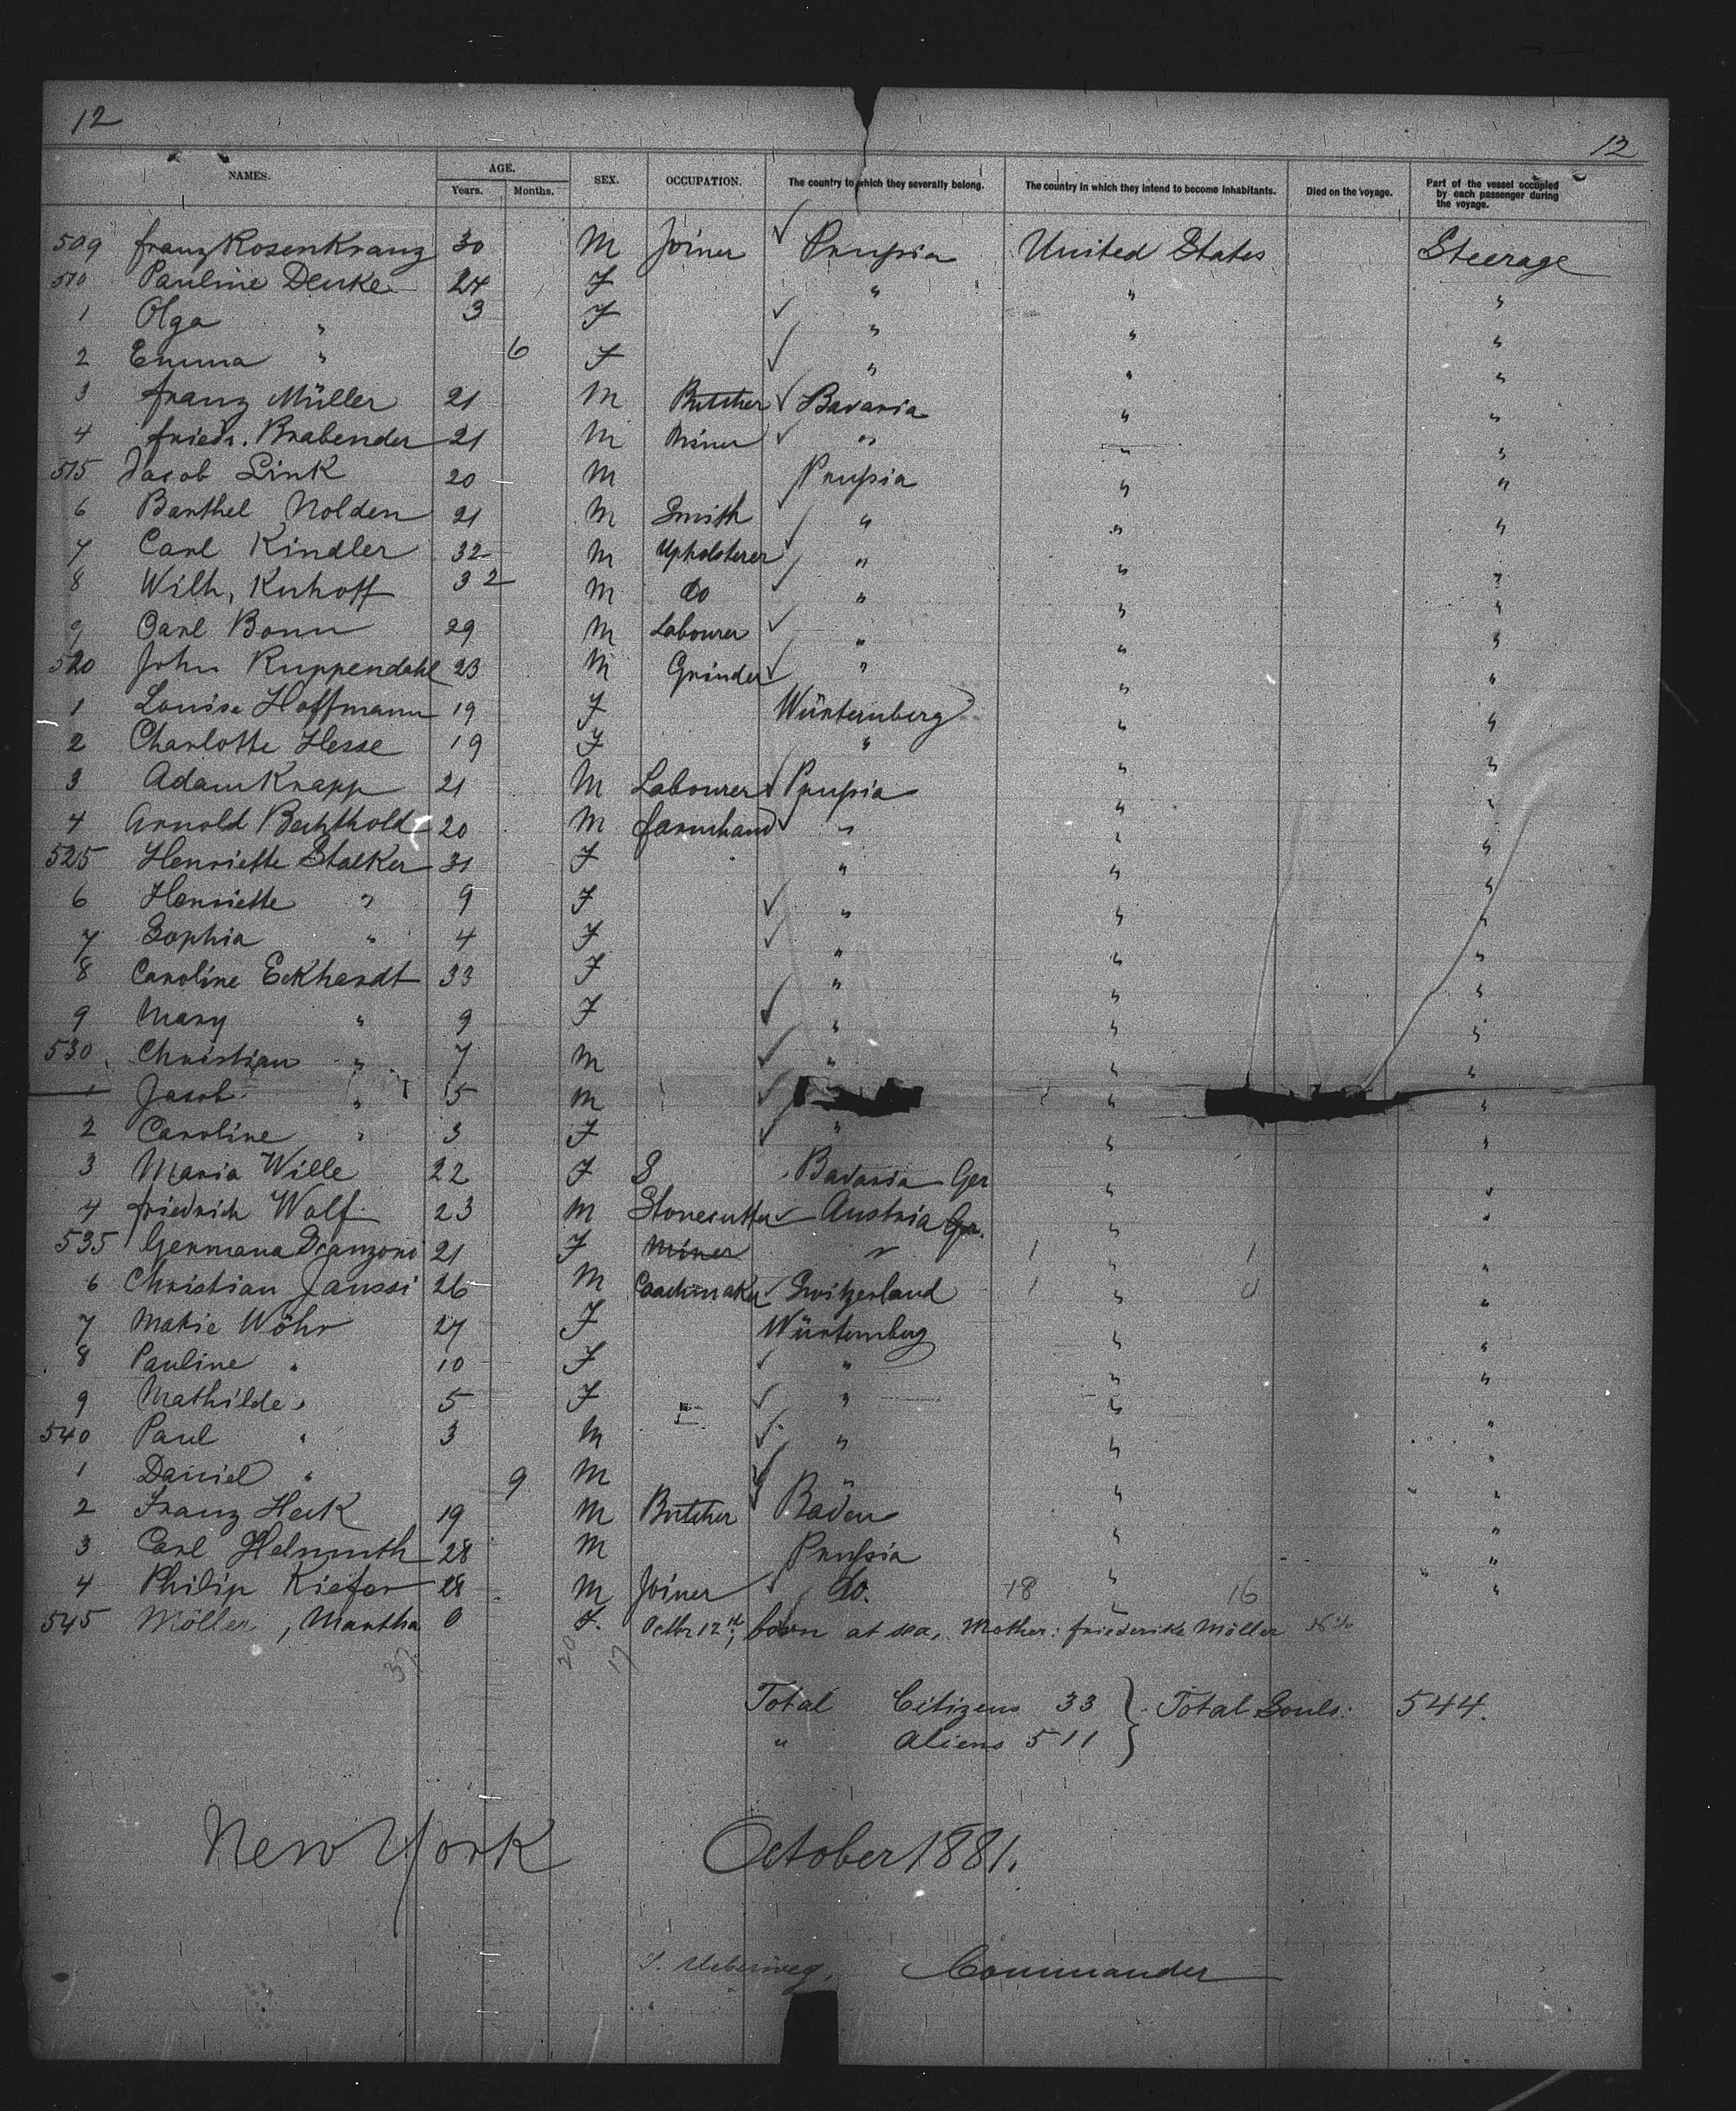 12 12
NAMES. AGE. Years. Months. SEX. OCCUPATION. The country to which they severally belong. The country in which they intend to become inhabitants. Died on the voyage. Part of the vessel occupied by each passenger during the voyage.
509 Franz Rosenkranz 30 M Joiner ✓ Prussia United States Steerage
510 Pauline Deuke 24 F " " "
1 Olga " 3 F ✓ " " "
2 Emma " 6 F ✓ " " "
3 Franz Müller 21 M Butcher ✓ Bavaria " "
4 Friedr. Brabender 21 M Miner ✓ " " "
515 Jacob Link 20 M Prussia " "
6 Barthel Nolden 21 M Smith ✓ " " "
7 Carl Kindler 32 M Upholsterer ✓ " " "
8 Wilh. Kuhoff 32 M do " " "
9 Carl Bonn 29 M Labourer ✓ " " "
520 John Ruppendahl 23 M Grinder ✓ " " "
1 Louise Hoffmann 19 F Würtemberg " "
2 Charlotte Hesse 19 F " " "
3 Adam Knapp 21 M Labourer ✓ Prussia " "
4 Arnold Bechthold 20 M Farmhand ✓ " " "
525 Henriette Stalker 31 F " " "
6 Henriette " 9 F ✓ " " "
7 Sophia " 4 F ✓ " " "
8 Caroline Eckhardt 33 F " " "
9 Mary " 9 F ✓ " " "
530 Christian " 7 M ✓ " " "
1 Jacob " 5 M ✓ " "
2 Caroline " 3 F ✓ " " "
3 Maria Wille 22 F S Bavaria Ger " "
4 Friedrich Wolf 23 M Stonecutter ✓ Austria Ger. " "
535 Germana 21 F Miner " 1 " 1 "
6 Christian Janssi 26 M Coachmaker ✓ Switzerland 1 " 0 "
7 Marie Wöhr 27 F Würtemberg " "
8 Pauline " 10 F ✓ " " "
9 Mathilde " 5 F ✓ " " "
540 Paul " 3 M ✓ " " "
1 Daniel " 9 M ✓ " " "
2 Franz Heck 19 M Butcher Baden " "
3 Carl Helmuth 28 M Prussia " "
4 Philip Kiefer 28 M Joiner ✓ do. 18 " 16 "
545 Möller, Martha 0 F. Octbr 12th, born at sea, Mother: Friederike Möller
37 20 17
Total Citizens 33 } Total Souls: 544.
" Aliens 511
New York October 1881.
Commander